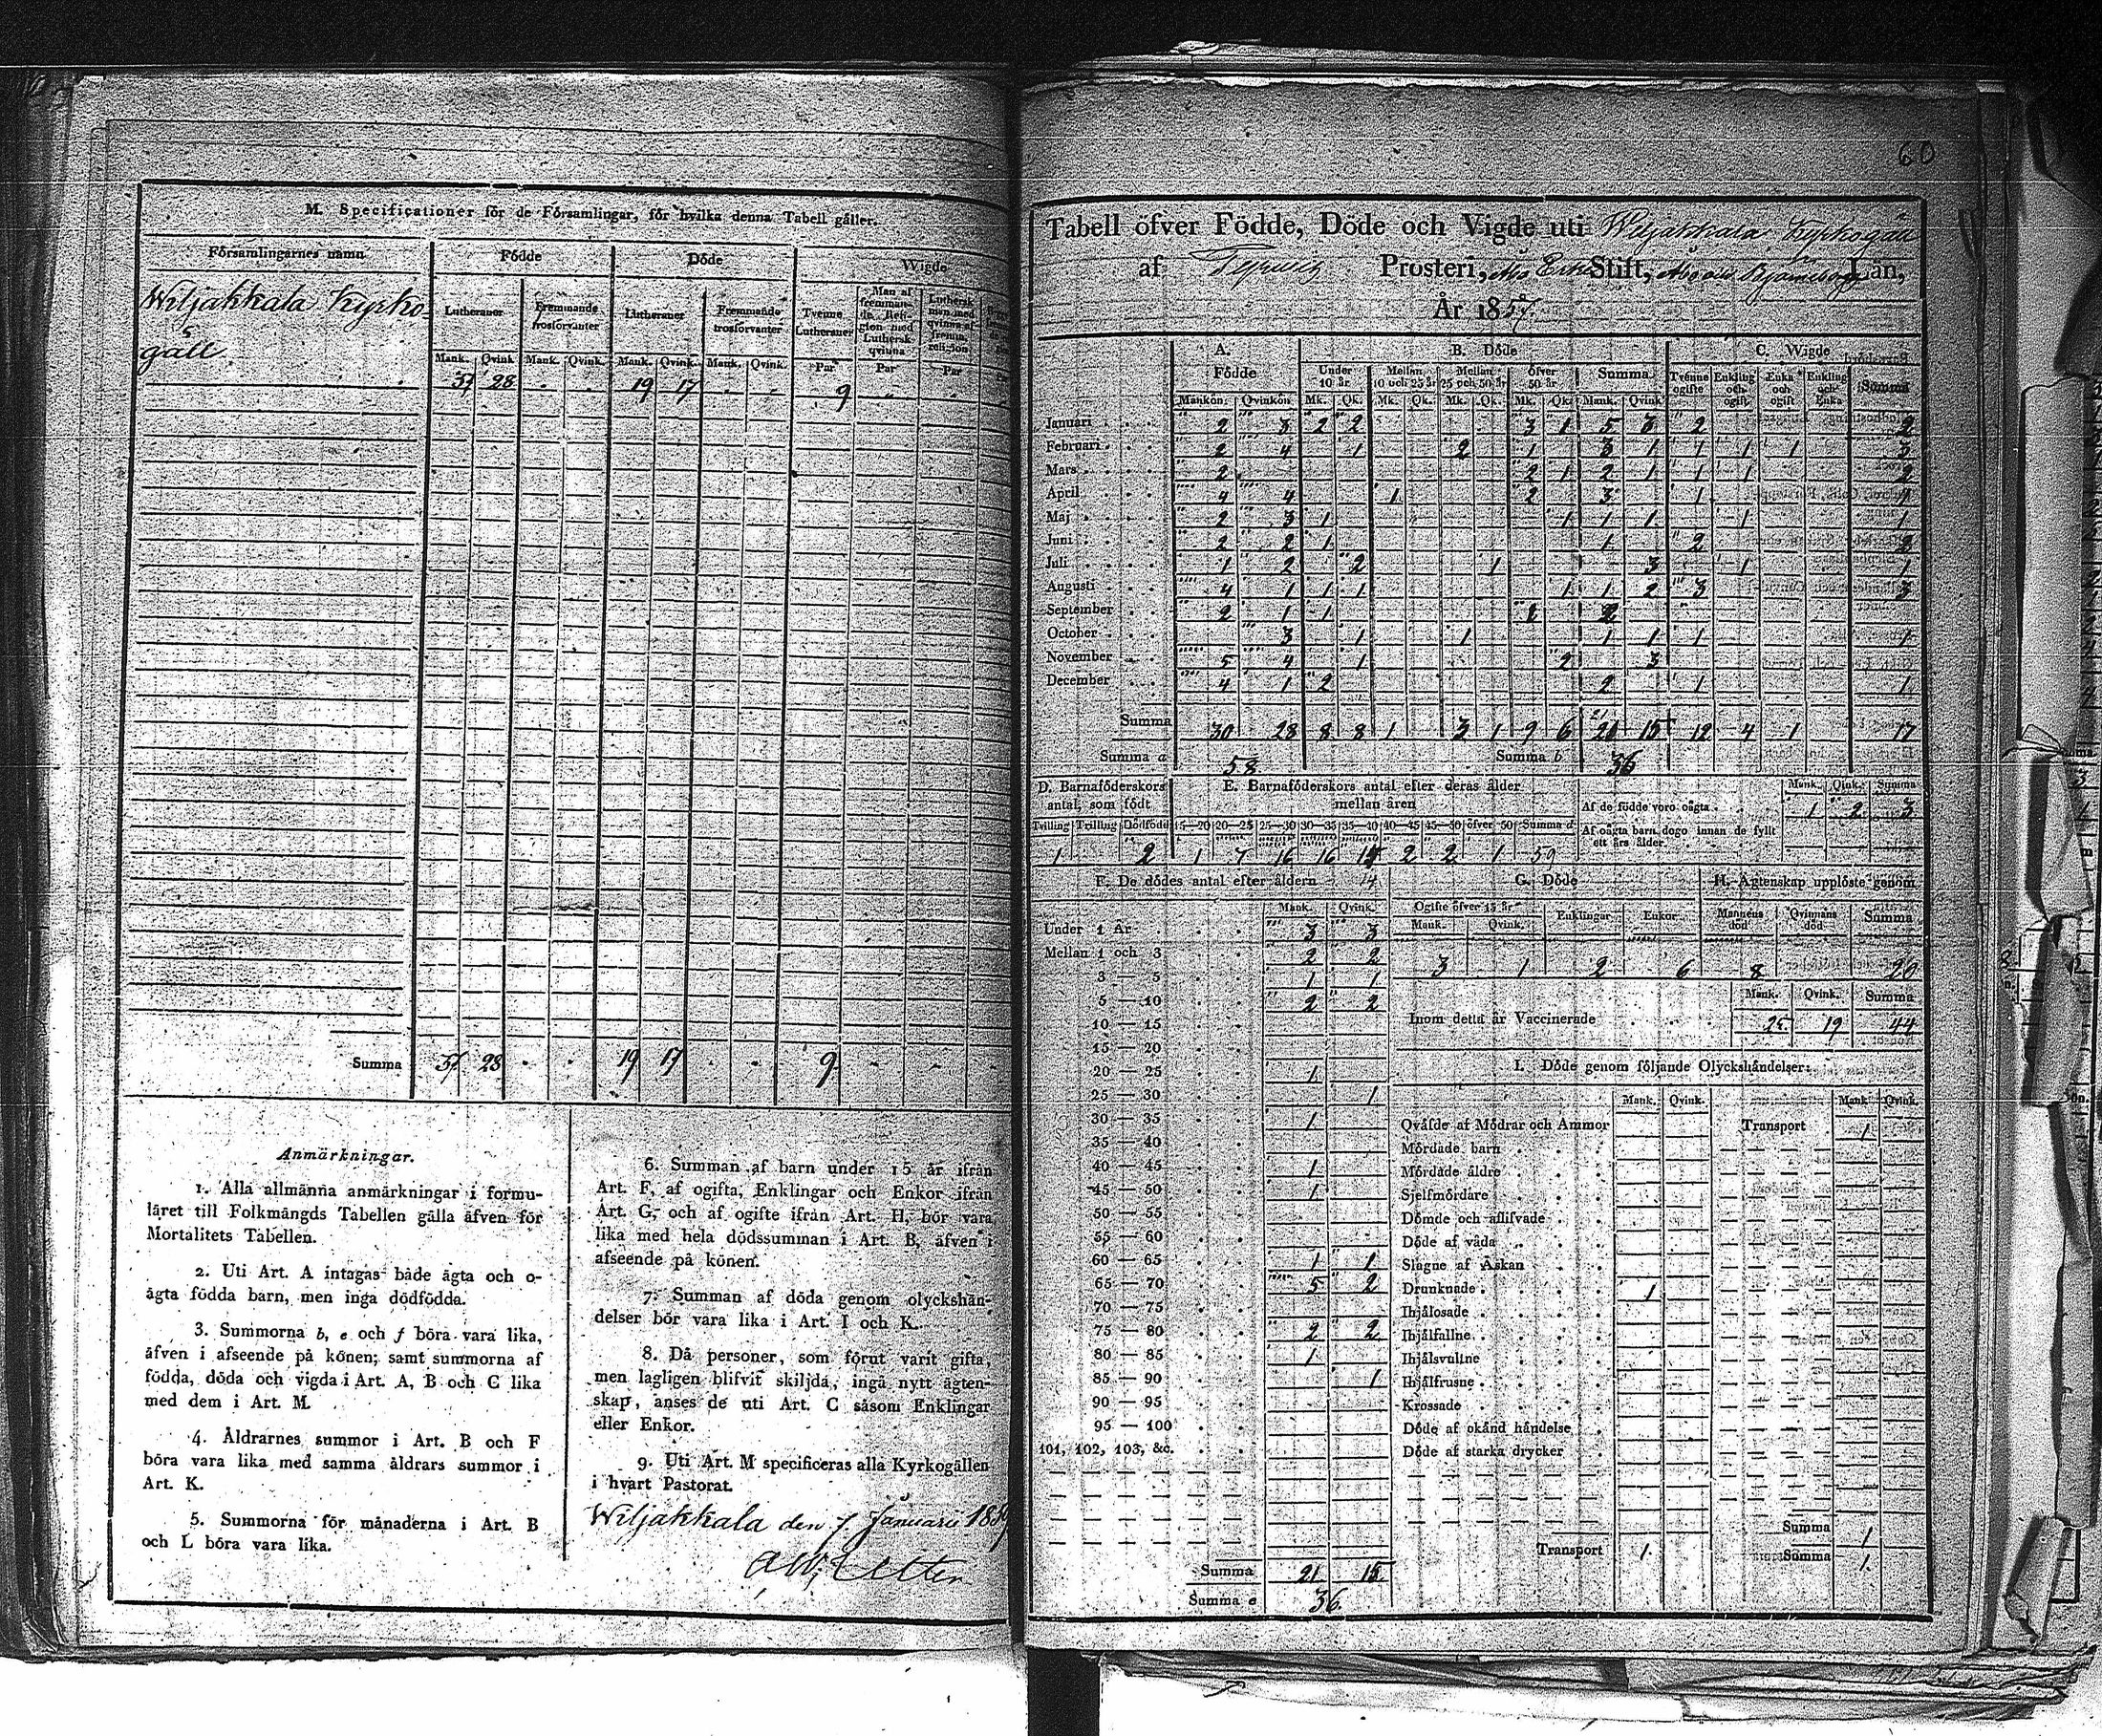 M. Specificationer för de Församlingar, för hvilka denna Tabell gäller.
Församlingarnes namn Födde Döde Wigde
Lutheraner Fremmande trosförvanter Lutheraner Fremmande trosförvanter Tvenne Lutheraner Man af fremmande Religion med Luthersk qvinna Luthersk man med qvinna af fremm. religion
Mank. Qvink. Mank. Qvink. Mank. Qvink. Mank. Qvink. Par Par Par
Wiljakkala Kyrko-
gäll
37 28 19 17 9
Summa 37 28 19 17 9
Anmärkningar.
1. Alla allmänna anmärkningar i formu-
läret till Folkmängds Tabellen gälla äfven för
Mortalitets Tabellen.
2. Uti Art. A intagas både ägta och o-
ägta födda barn, men inga dödfödda.
3. Summorna b, e och f böra vara lika,
äfven i afseende på könen; samt summorna af
födda, döda och vigda i Art. A, B och C lika
med dem i Art. M.
4. Åldrarnes summor i Art. B och F
böra vara lika med samma åldrars summor i
Art. K.
5. Summorna för månaderna i Art. B
och L böra vara lika.
6. Summan af barn under 15 år ifrån
Art. F, af ogifta, Enklingar och Enkor ifrån
Art. G, och af ogifte ifrån Art. H, bör vara
lika med hela dödssumman i Art. B, äfven i
afseende på könen.
7. Summan af döda genom olyckshän-
delser bör vara lika i Art. I och K.
8. Då personer, som förut varit gifta,
men lagligen blifvit skiljda, ingå nytt ägten-
skap, anses de uti Art. C såsom Enklingar
eller Enkor.
9. Uti Art. M specificeras alla Kyrkogällen
i hvart Pastorat.
Wiljakkala den 7 Januarii
60
Tabell öfver Födde, Döde och Vigde uti Wiljakkala Kyrkogäll
af Prosteri, Åbo Erke Stift, Åbo och Björneborgs Län,
År 1857.
A. Födde B. Döde C. Wigde
Under 10 år Mellan 10 och 25 år Mellan 25 och 50 år Öfver 50 år Summa Tvenne ogifte Enkling och ogift Enka och ogift Enkling och Enka Summa
Mankön. Qvinkön Mk. Qk. Mk. Qk. Mk. Qk. Mk. Qk. Mank. Qvink
Januari 2 3 2 2 3 1 5 3 2 2
Februari 2 4 1 2 1 3 1 1 1 1 3
Mars 2 2 1 2 1 1 1 2
April 4 4 1 2 3 1 1
Maj 2 3 1 1 1 1 1 1
Juni 2 2 1 1 2 2
Juli 1 2 2 1 3 1 1
Augusti 4 1 1 1 1 1 2 3 3
September 2 1 1 1 2
October 3 1 1 1 1 1 1
November 5 4 1 2 3
December 4 1 2 2 1 1
Summa 30 28 8 8 1 3 1 9 6 15 12 4 1 17
Summa a 58 Summa b 36
D. Barnaföderskors antal, som födt
Tvilling Trilling Dödföde
1 2
E. Barnaföderskors antal efter deras ålder mellan åren
15—20 20—25 25—30 30—35 35—40 40—45 45—50 öfver 50 Summa d
1 7 16 16 14 2 2 1 59
Mank. Qink. Summa
Af de födde voro oägta 1 2 3
Af oägta barn dogo innan de fyllt
ett års ålder.
F. De dödes antal efter åldern
Mank. Qvink.
Under 1 År 3 3
Mellan 1 och 3 2 2
3 — 5 1 1
5 — 10 2 2
10 — 15
15 — 20
20 — 25 1
25 — 30 1
30 — 35 1
35 — 40
40 — 45 1
45 — 50 1
50 — 55
55 — 60
60 — 65 1 1
65 — 70 5 2
70 — 75
75 — 80 2 2
80 — 85 1
85 — 90 1
90 — 95
95 — 100
101, 102, 103, &c.
Summa 21 15
Summa e 36.
G. Döde
Ogifte öfver 15 år Enklingar Enkor
Mank. Qvink.
3 1 2 6
H. Ägtenskap upplöste genom
Mannens död Qvinnans död Summa
8 20
Mank. Qvink. Summa
Inom detta år Vaccinerade 25 19 44
I. Döde genom följande Olyckshändelser:
Mank. Qvink. Mank Qvink.
Qväfde af Mödrar och Ammor Transport 1
Mördade barn
Mördade äldre
Sjelfmördare
Dömde och aflifvade
Döde af våda
Slagne af Åskan
Drunknade 1
Ihjälosade
Ihjälfallne
Ihjälsvultne
Ihjälfrusne
Krossade
Döde af okänd händelse
Döde af starka drycker
Summa 1
Transport 1 Summa 1.